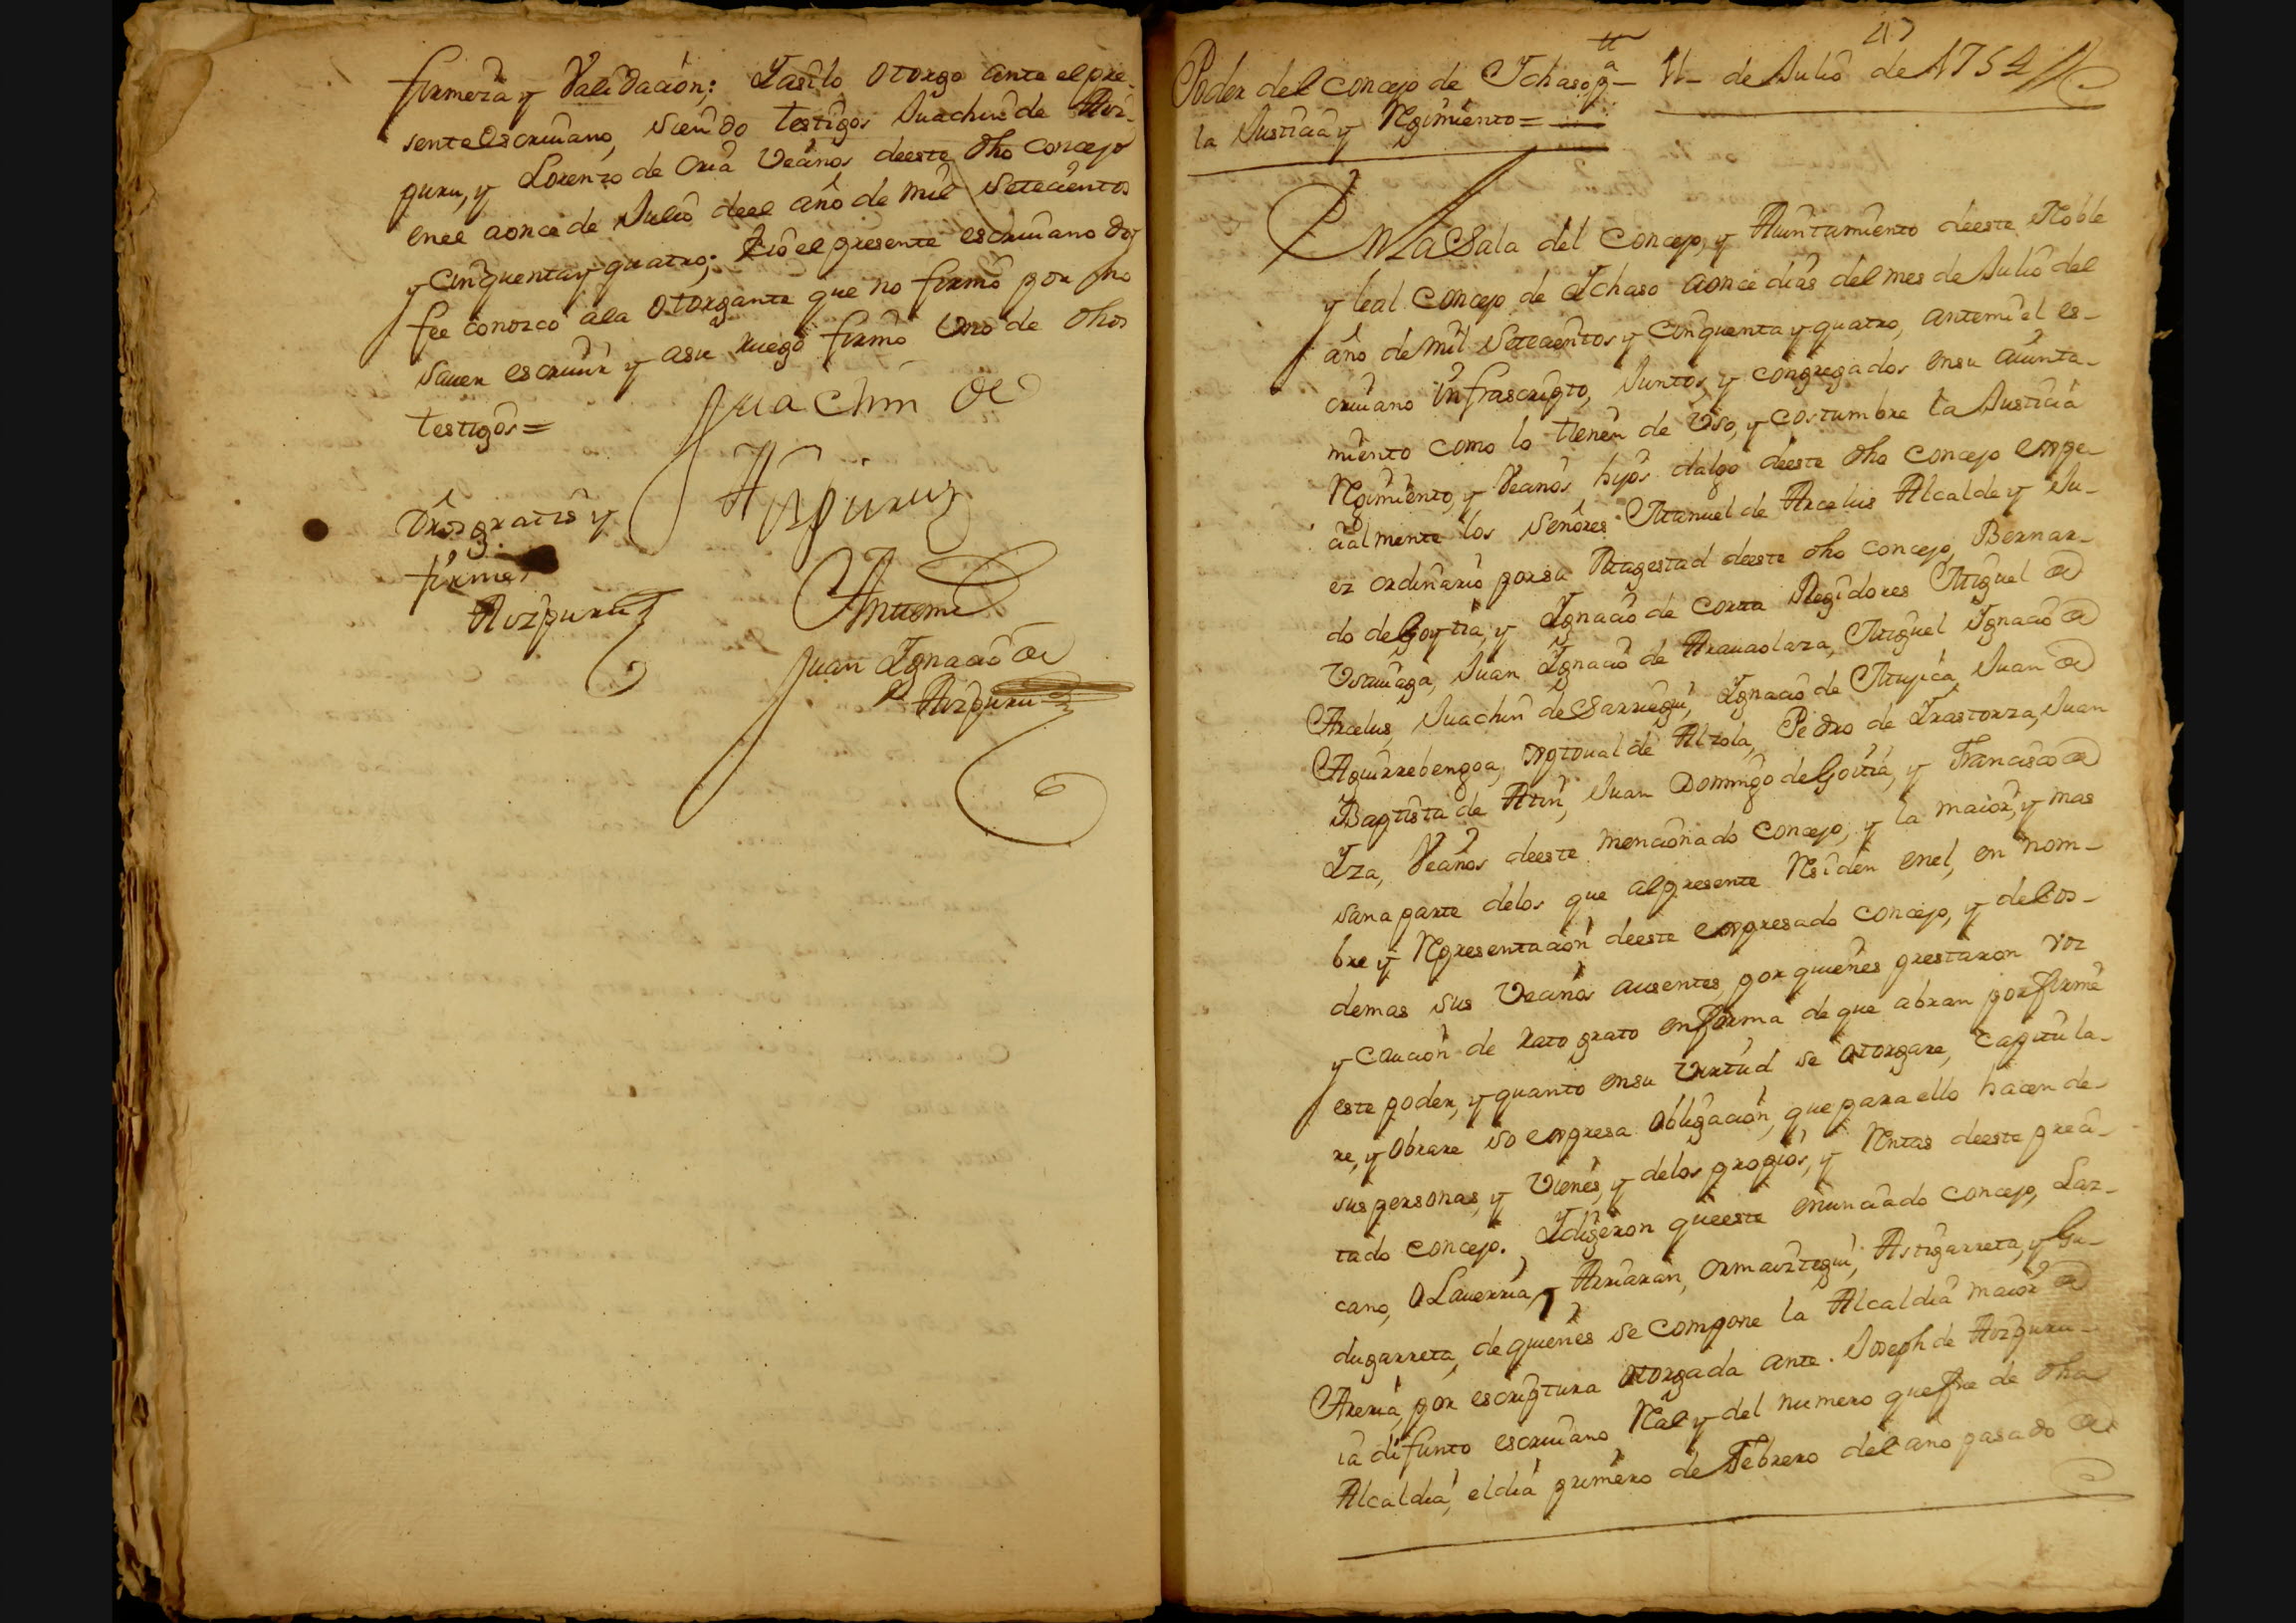 firmeza y Validacion; Y asi lo otorgo ante el pre-
sente escriuano, siendo testigos Juachin de Aiz-
puru, y Lorenzo de Oria Vecinos de este dho concejo
en el a once de Julio de el año de mil setecientos
y cinquenta y quatro; E io el presente escriuano doy
fee conozco a la otorgante que no firmó por no
sauer escriuir y a su ruego firmó uno de dhos
testigos=
Juachin de
Aizpuru
Dros gratis y
firme
Aizpuru
Antemi
Juan Ignacio de
Aizpuru
217
Poder del concejo de Ichaso pa 11 de Julio de 1754
la Justicia y Rejimiento=
En la Sala del concejo, y Aiuntamiento de este Noble
y leal concejo de Ichaso a once dias del mes de Julio del
año de mil setecientos y cinquenta y quatro, ante mi el es-
criuano infrascripto, Juntos, y congregados en su aiunta-
miento como lo tienen de Uso, y costumbre la Justicia
Regimiento, y Vecinos hijos dalgo de este dho concejo espe-
cialmente los señores Manuel de Arcelus Alcalde y Ju-
ez ordinario por su Magestad de este dho concejo, Bernar-
do de Goytia, y Ignacio de Corta Regidores Miguel de
Usuruaga, Juan Ignacio de Arauaolaza, Miguel Ignacio de
Arcelus, Juachin de Sarriegui, Ignacio de Mujica, Juan de
Aguirrebengoa, Cristoual de Alzola, Pedro de Irastorza, Juan
Baptista de Atin, Juan Domingo de Goitia, y Francisco de
Iza, Vecinos de este mencionado concejo, y la maior, y mas
sana parte de los que al presente Residen en el, en nom-
bre y Representacion de este expresado concejo, y de los
demas sus Vecinos ausentes por quienes prestaron voz
y caucion de rato grato en forma de que abran por firme
este poder, y quanto en su virtud se otorgare, capitula-
re, y obrare so expresa obligacion, que para ello hacen de
sus personas, y vienes, y de los propios, y Rentas de este preci-
tado concejo. Y digeron que este enunciado concejo, Laz-
cano, Olauerria, y Arriaran, Ormaiztegui, Astigarreta, y Gu-
dugarreta, de quienes se compone la Alcaldia maior de
Areria, por escriptura otorgada ante Joseph de Aizpuru
ia difunto escriuano Real y del numero que fue de dha
Alcaldia, el dia primero de Febrero del año pasado de